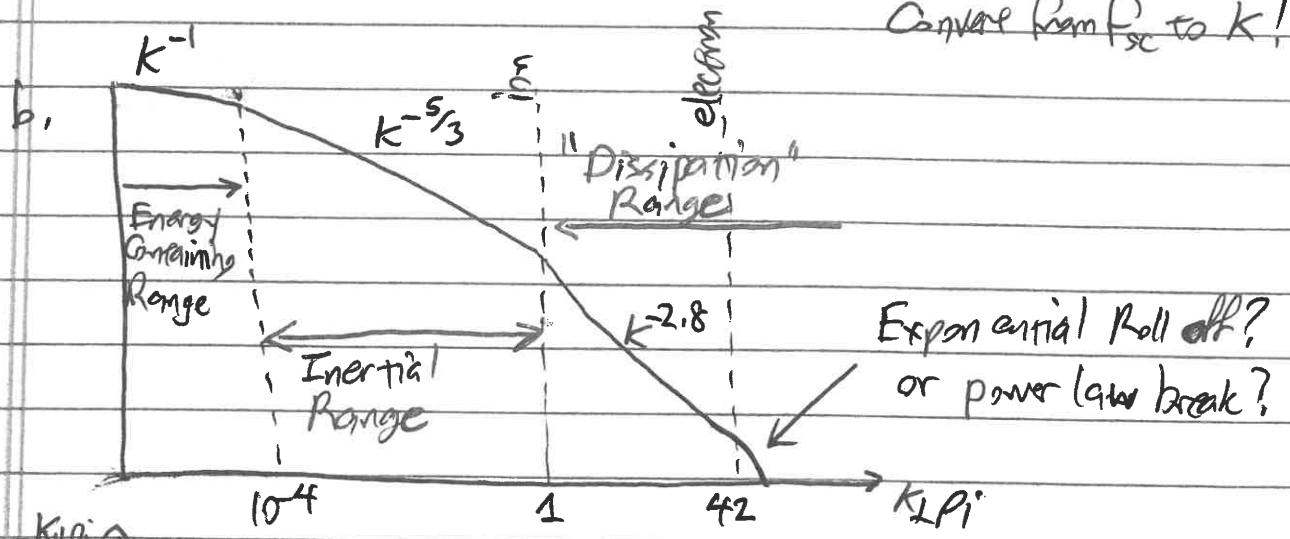 Convert from f_sc to K!
K^-1
b.
K^-5/3
ion
electron
"Dissipation"
Range
Energy
Containing
Range
Inertial
Range
K^-2.8
Exponential Roll off?
or power law break?
10^-4
1
42
K⊥ρi
K⊥ρi